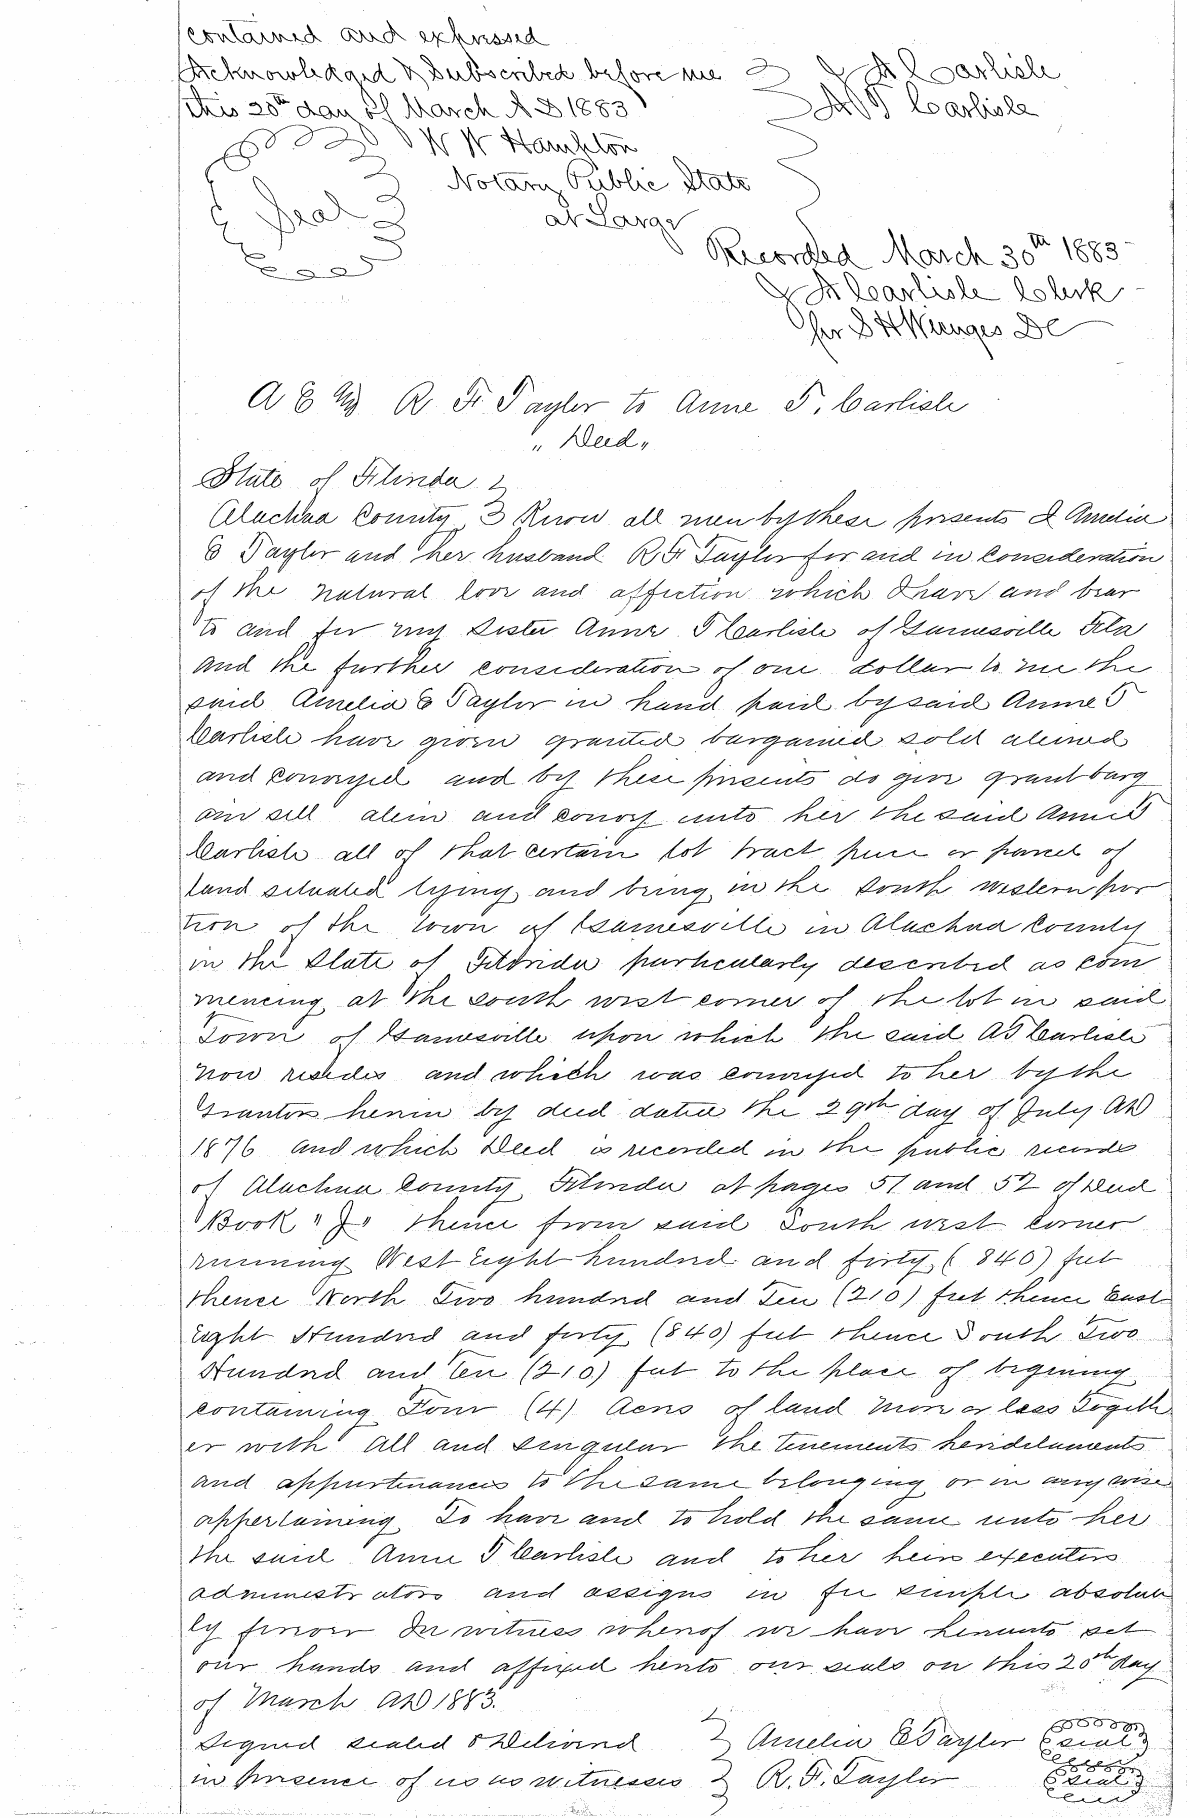 contained and expressed
Acknowledged & Subscribed before me
this 20th day of March A D 1883
J A Carlisle
A T Carlisle
W W Hampton
Notary Public State
at Large
Seal
Recorded March 30th 1883
J A Carlisle Clerk
per S H Wienges DC
A E & R. F. Taylor to Anne T. Carlisle
" Deed "
State of Florida
Alachua County Know all men by these presents I Amelia
E Taylor and her husband R F Taylor for and in Consideration
of the natural love and affection which I have and bear
to and for my Sister Anne T Carlisle of Gainesville Fla
and the further consideration of one dollar to me the
said Amelia E Taylor in hand paid by said Anne T
Carlisle have given granted bargained sold aliened
and conveyed and by these presents do give grant barg
ain sell alein and convey unto her the said Anne T
Carlisle all of that certain lot tract piece or parcel of
land situated lying and being in the South western por
tion of the town of Gainesville in Alachua County
in the State of Florida particularly described as com
mencing at the south west corner of the lot in said
Town of Gainesville upon which the said A T Carlisle
now resides and which was conveyed to her by the
Grantors herein by deed dated the 29th day of July AD
1876 and which Deed is recorded in the public records
of Alachua County Florida at pages 51 and 52 of Deed
Book "J" thence from said South west corner
running West Eight hundred and forty (840) feet
thence North Two hundred and Ten (210) feet thence East
Eight Hundred and forty (840) feet thence South Two
Hundred and Ten (210) feet to the place of begening
containing Four (4) Acres of land more or less Togeth
er with all and singular the tenements heridetaments
and appurtenances to the same belonging or in any wise
appertaining To have and to hold the same unto her
the said Anne T Carlisle and to her heirs executors
administrators and assigns in fee simple absolute
ly forever In witness whereof we have hereunto set
our hands and affixed hereto our seals on this 20th day
of March AD 1883.
Signed sealed & Delivered Amelia E Taylor seal
in presence of us as witnesses R. F. Taylor seal